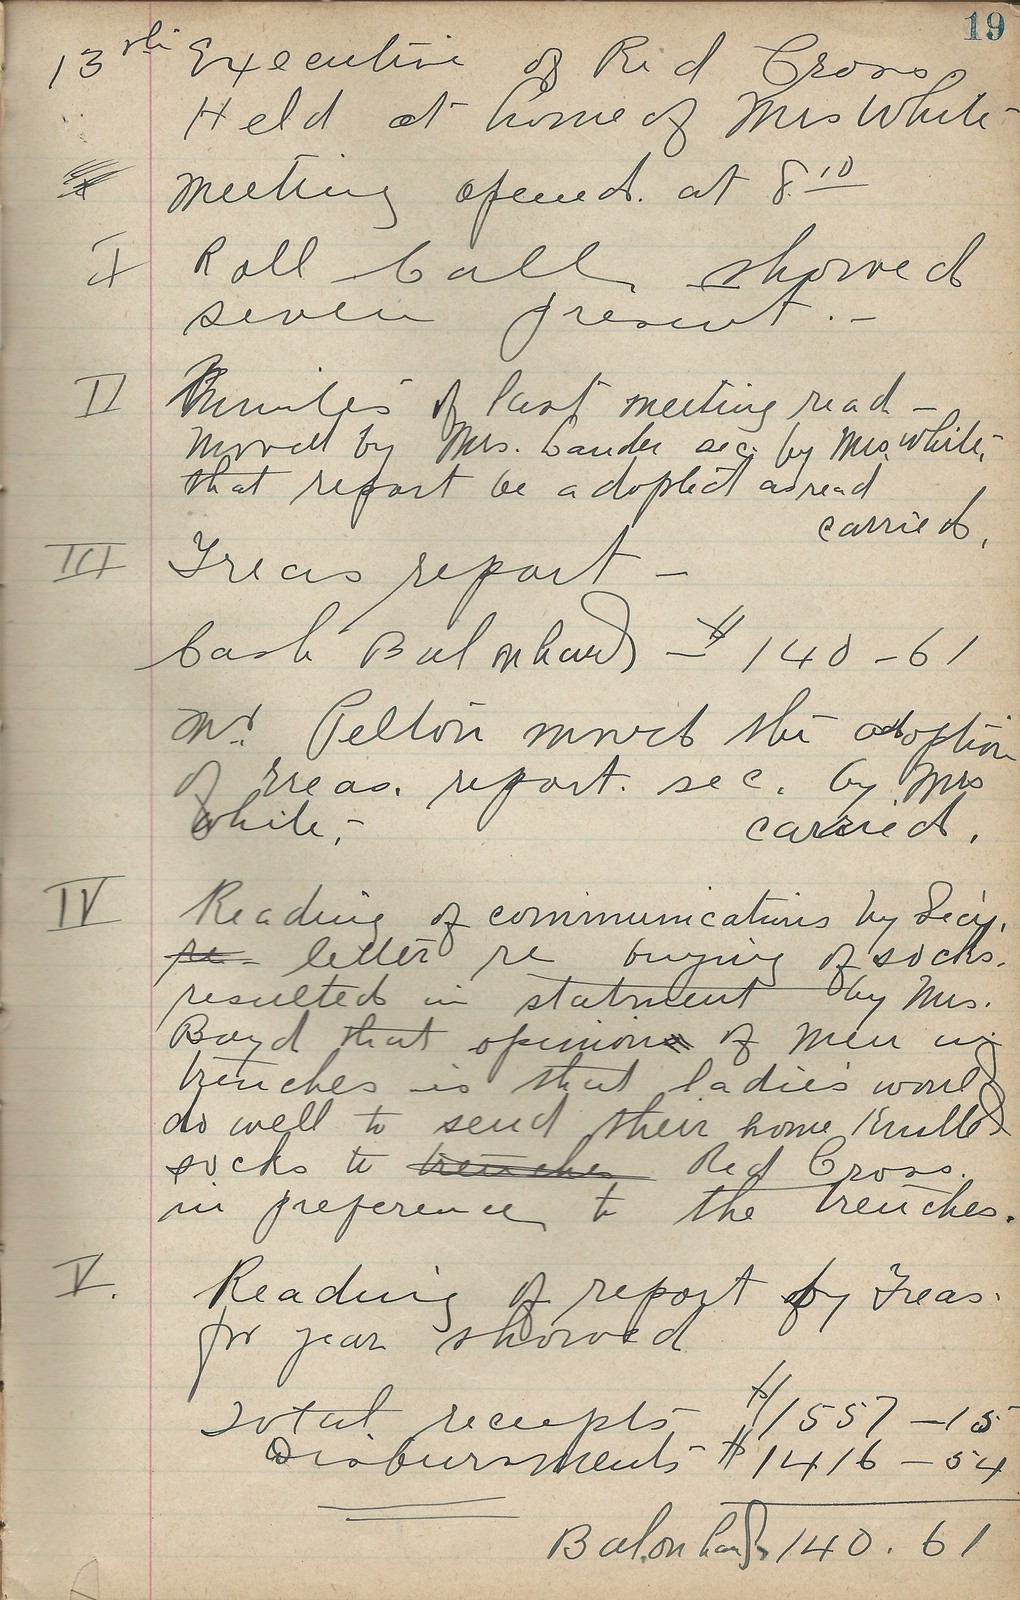 19
13th Executive of Red Cross
Held at home of Mrs White
Meeting opened. at 8.10
I Roll Call showed
seven present. -
II Minutes of last meeting read -
moved by Mrs. Cauder sec. by Mrs. White,
that report be adopted as read
carried,
III Treas report -
Cash Bal on hand - $140-61
Mr. Pelton moved the adoption
of Treas. report. sec. by Mrs
White,- carried.
IV Reading of communications by Sec'y.
re letter re buying of socks.
resulted in statment by Mrs.
Boyd that opinion of men in
trenches is that ladies would
do well to send their home knitted
socks to trenches Red Cross.
in preference to the trenches.
V. Reading of report by Treas.
for year showed
Total receipts $1557-15
Disbursments $1416-54
Bal. on hand 140.61